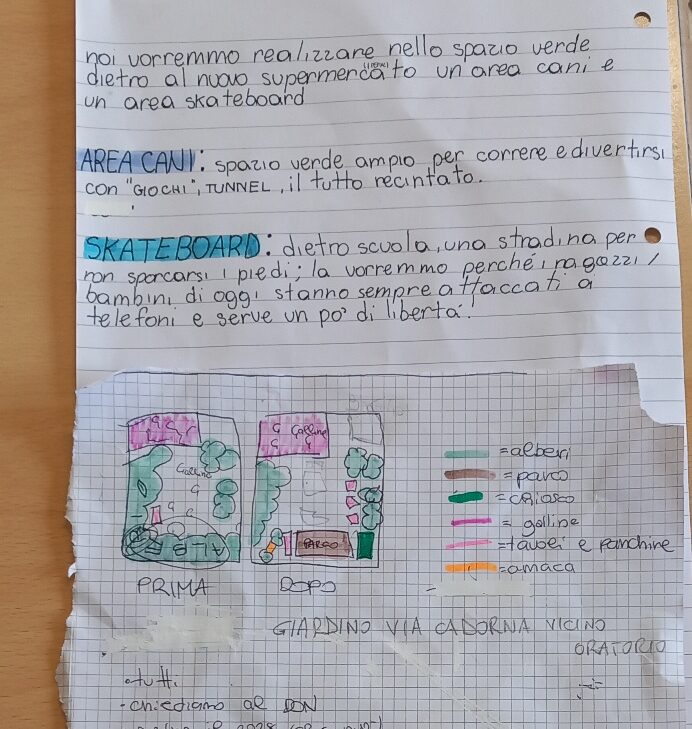 noi vorremmo realizzare nello spazio verde
dietro al nuovo supermercato un area cani e
un area skateboard
AREA CANI: spazio verde ampio per correre e divertirsi
con "GIOCHI", TUNNEL, il tutto recintato.
SKATEBOARD: dietro scuola, una stradina per
non sporcarsi i piedi; la vorremmo perché i ragazzi/
bambini di oggi stanno sempre attaccati a
telefoni e serve un po' di libertà!
G Galline
G G
Galline
G
G G
ALBERI
PARCO
=alberi
=parco
=chiosco
= galline
=tavoli e panchine
=amaca
PRIMA DOPO
GIARDINO VIA CADORNA VICINO
ORATORIO
•tutti
-chiediamo al DON